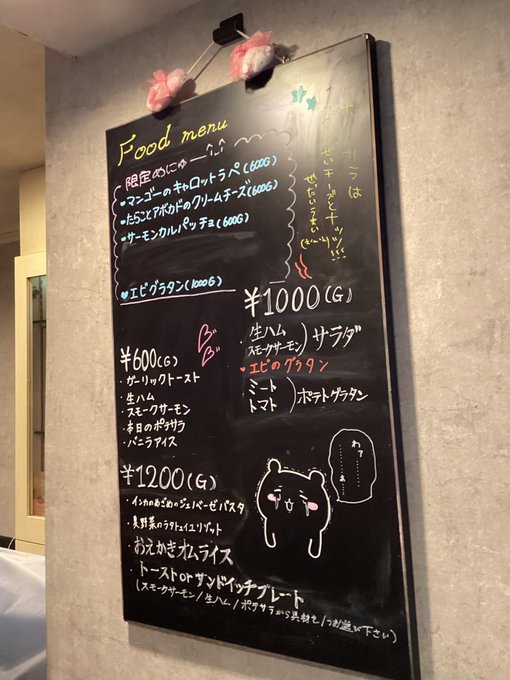 Food menu
限定めにゅー
・マンゴーのキャロットラペ(600G)
・たらことアボカドのクリームチーズ(600G)
・サーモンカルパッチョ(600G)
♥エビグラタン(1000G)
¥1000(G)
・生ハム
スモークサーモン)サラダ
♥エビのグラタン
・ミート
トマト)ポテトグラタン
¥600(G)
・ガーリックトースト
・生ハム
・スモークサーモン
・本日のポテサラ
・バニラアイス
¥1200(G)
・インカのめざめのジェノベーゼパスタ
・夏野菜のラタトゥイユリゾット
・おえかきオムライス
・トーストorサンドイッチプレート
(スモークサーモン/生ハム/ポテサラから具材を1つお選び下さい)
わァ
ぁ